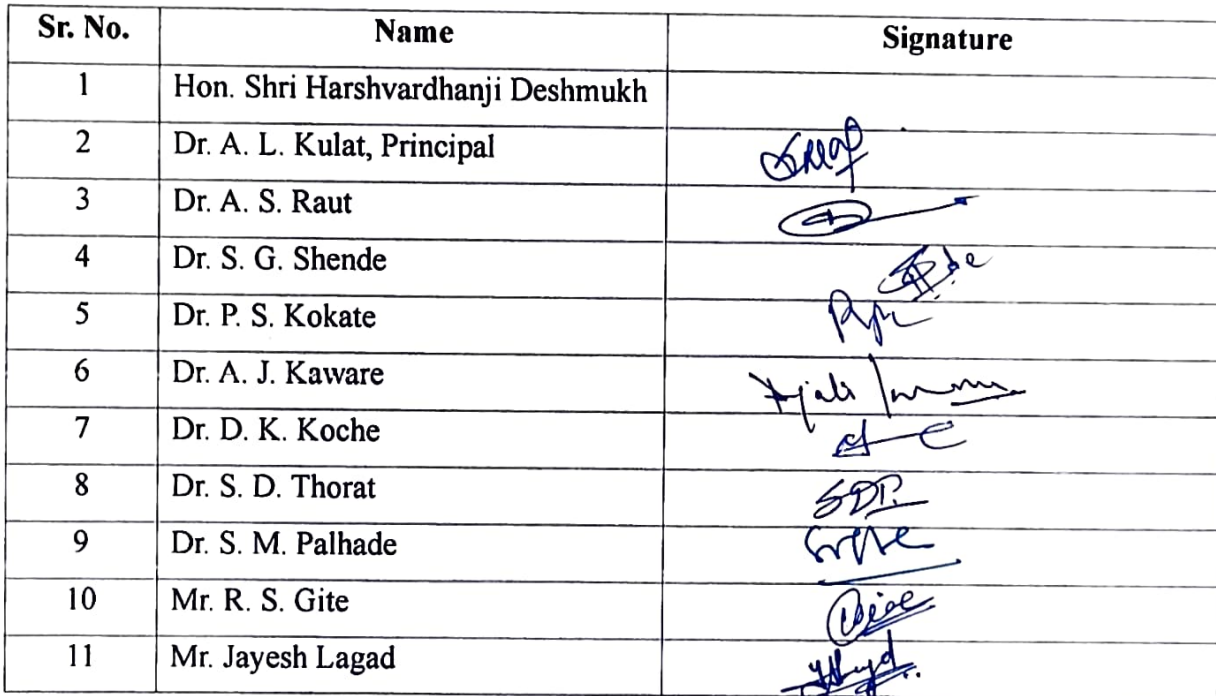 Sr. No. Name Signature
1 Hon. Shri Harshvardhanji Deshmukh
2 Dr. A. L. Kulat, Principal
3 Dr. A. S. Raut
4 Dr. S. G. Shende
5 Dr. P. S. Kokate
6 Dr. A. J. Kaware
7 Dr. D. K. Koche
8 Dr. S. D. Thorat
9 Dr. S. M. Palhade
10 Mr. R. S. Gite
11 Mr. Jayesh Lagad